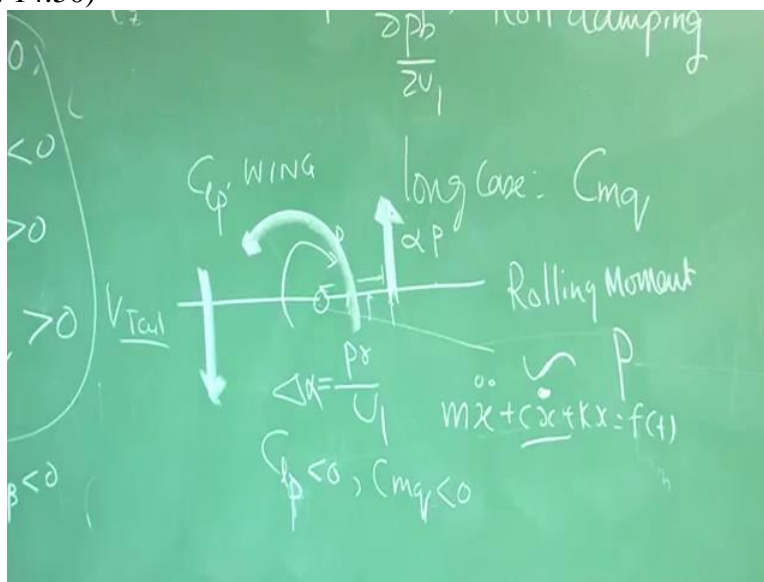 14:30)
∂pb
2U₁
Roll damping
0,
<0
>0
>0
β<0
Clp, WING
Long Case: Cmq
p
α p
r
Rolling Moment
VTail
Δα=pr/U₁
p
mẍ+cẋ+Kx=f(t)
Clp<0, Cmq<0